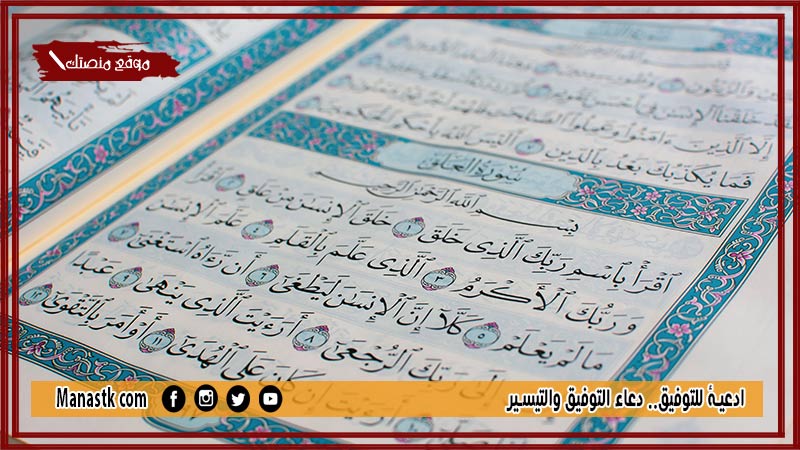 موقع منصتك
وَٱلزَّيْتُونِ
خَلَقْنَا ٱلْإِنسَٰنَ فِىٓ أَحْسَنِ تَقْوِيمٍ
إِلَّا ٱلَّذِينَ ءَامَنُوا۟ وَعَمِلُوا۟ ٱلصَّٰلِحَٰتِ فَلَهُمْ أَجْرٌ غَيْرُ
فَمَا يُكَذِّبُكَ بَعْدُ بِٱلدِّينِ ٧ أَلَيْسَ ٱللَّهُ بِأَحْكَمِ ٱلْحَٰكِمِينَ ٨
سُورَةُ الْعَلَقِ
بِسْمِ ٱللَّهِ ٱلرَّحْمَٰنِ ٱلرَّحِيمِ
ٱقْرَأْ بِٱسْمِ رَبِّكَ ٱلَّذِى خَلَقَ ١ خَلَقَ ٱلْإِنسَٰنَ مِنْ عَلَقٍ ٢ ٱقْرَأْ
وَرَبُّكَ ٱلْأَكْرَمُ ٣ ٱلَّذِى عَلَّمَ بِٱلْقَلَمِ ٤ عَلَّمَ ٱلْإِنسَٰنَ
مَا لَمْ يَعْلَمْ ٥ كَلَّآ إِنَّ ٱلْإِنسَٰنَ لَيَطْغَىٰٓ ٦ أَن رَّءَاهُ ٱسْتَغْنَىٰٓ ٧
إِلَىٰ رَبِّكَ ٱلرُّجْعَىٰٓ ٨ أَرَءَيْتَ ٱلَّذِى يَنْهَىٰ ٩ عَبْدًا
أَرَءَيْتَ إِن كَانَ عَلَى ٱلْهُدَىٰٓ ١١ أَوْ أَمَرَ بِٱلتَّقْوَىٰٓ ١٢
ادعية للتوفيق.. دعاء التوفيق والتيسير
Manastk com